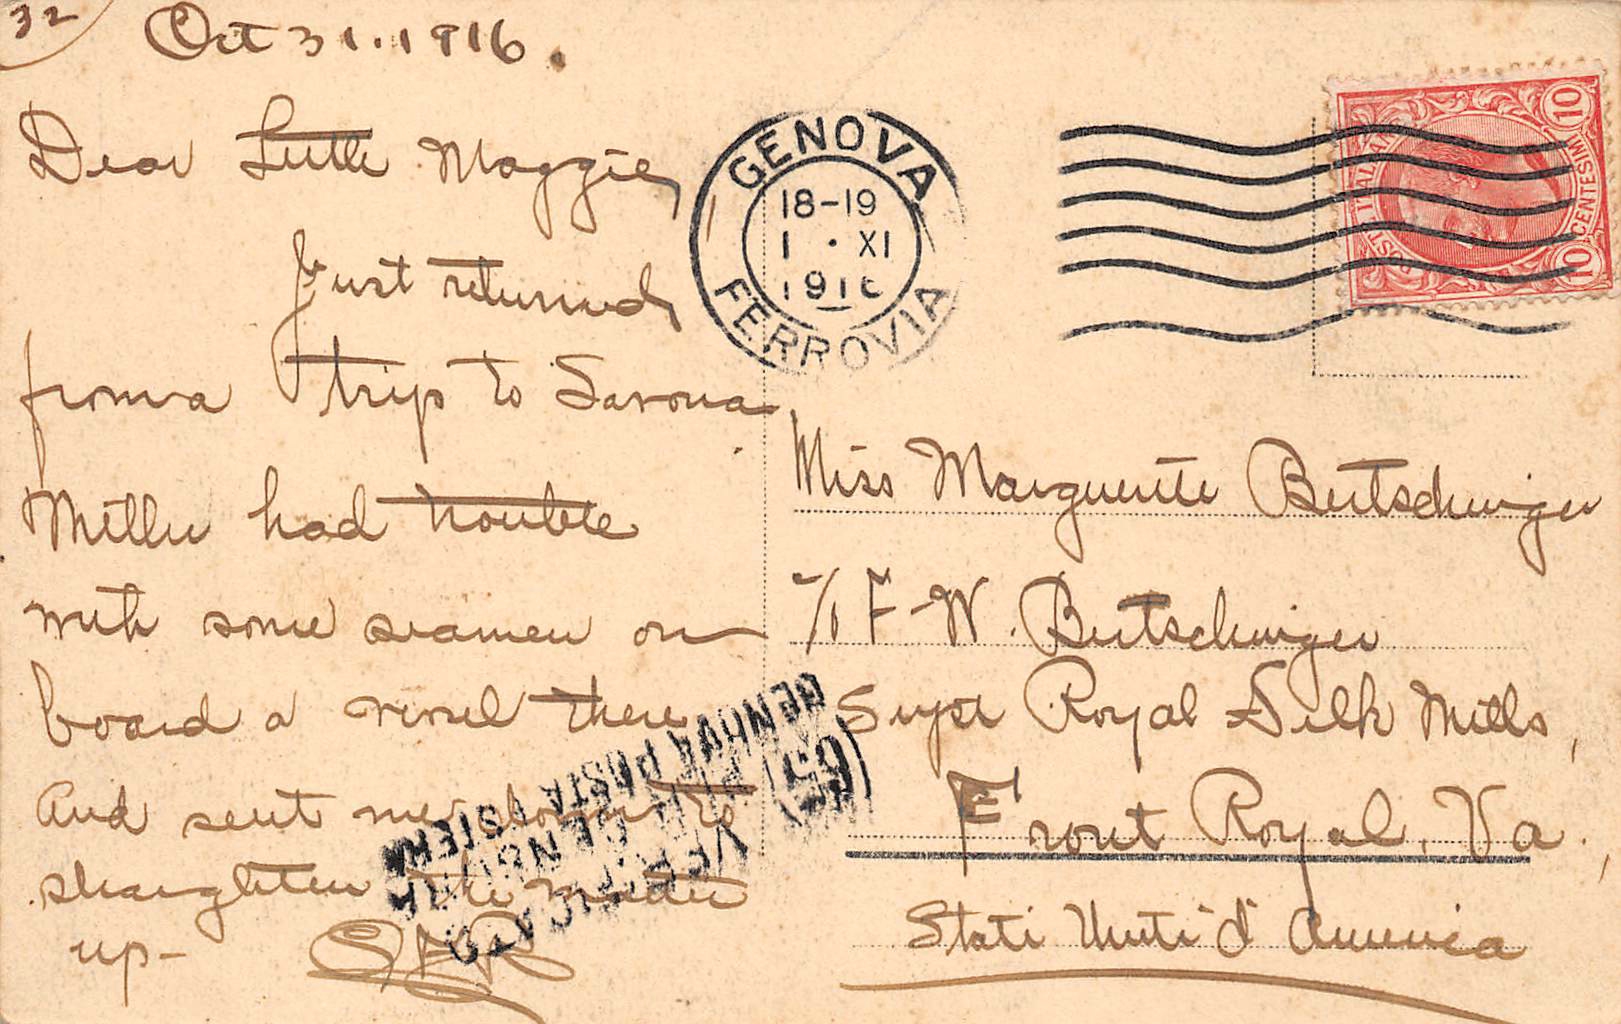 32
Oct 31. 1916.
Dear Little Maggie,
Just returned
from a trip to Savona,
Miller had trouble
with some seamen on
board a vessel there
and sent me down to
straighten the matter
up-
GENOVA
18-19
1 . XI
1916
FERROVIA
POSTE ITALIANE
10 CENTESIMI 10
Miss Marguerite Bertschinger
c/o F-W. Bertschinger
Supt Royal Silk Mills,
Front Royal, Va.,
Stati Uniti d' America
VERIFICATO
GENOVA POSTA ESTERA
(65)